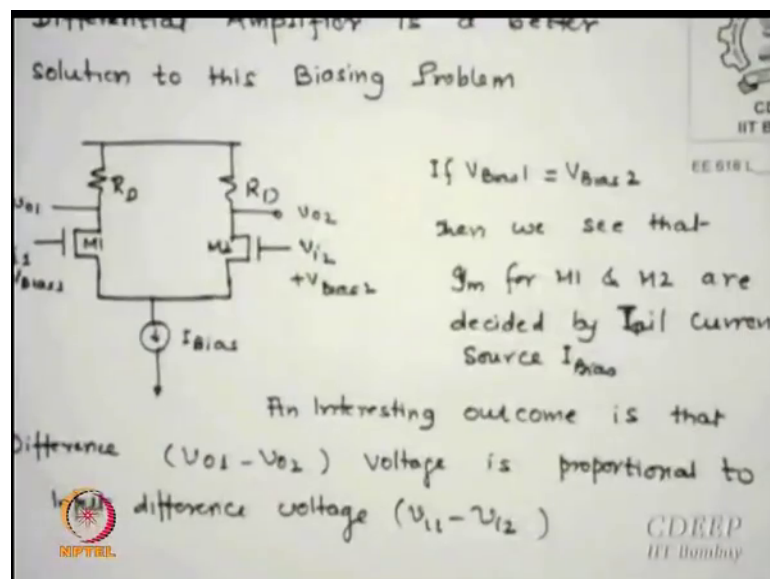 Differential Amplifier is a better
solution to this Biasing Problem
CD
IIT B
EE 618 L
RD
RD
vo1
vo2
M1
M2
Vi2
+VBias2
VBias1
IBias
If VBias1 = VBias2
Then we see that
gm for M1 & M2 are
decided by Tail Curren
Source IBias
An Interesting outcome is that
Difference (vo1 - vo2) voltage is proportional to
Input difference voltage (vi1 - vi2)
NPTEL
CDEEP
IIT Bombay